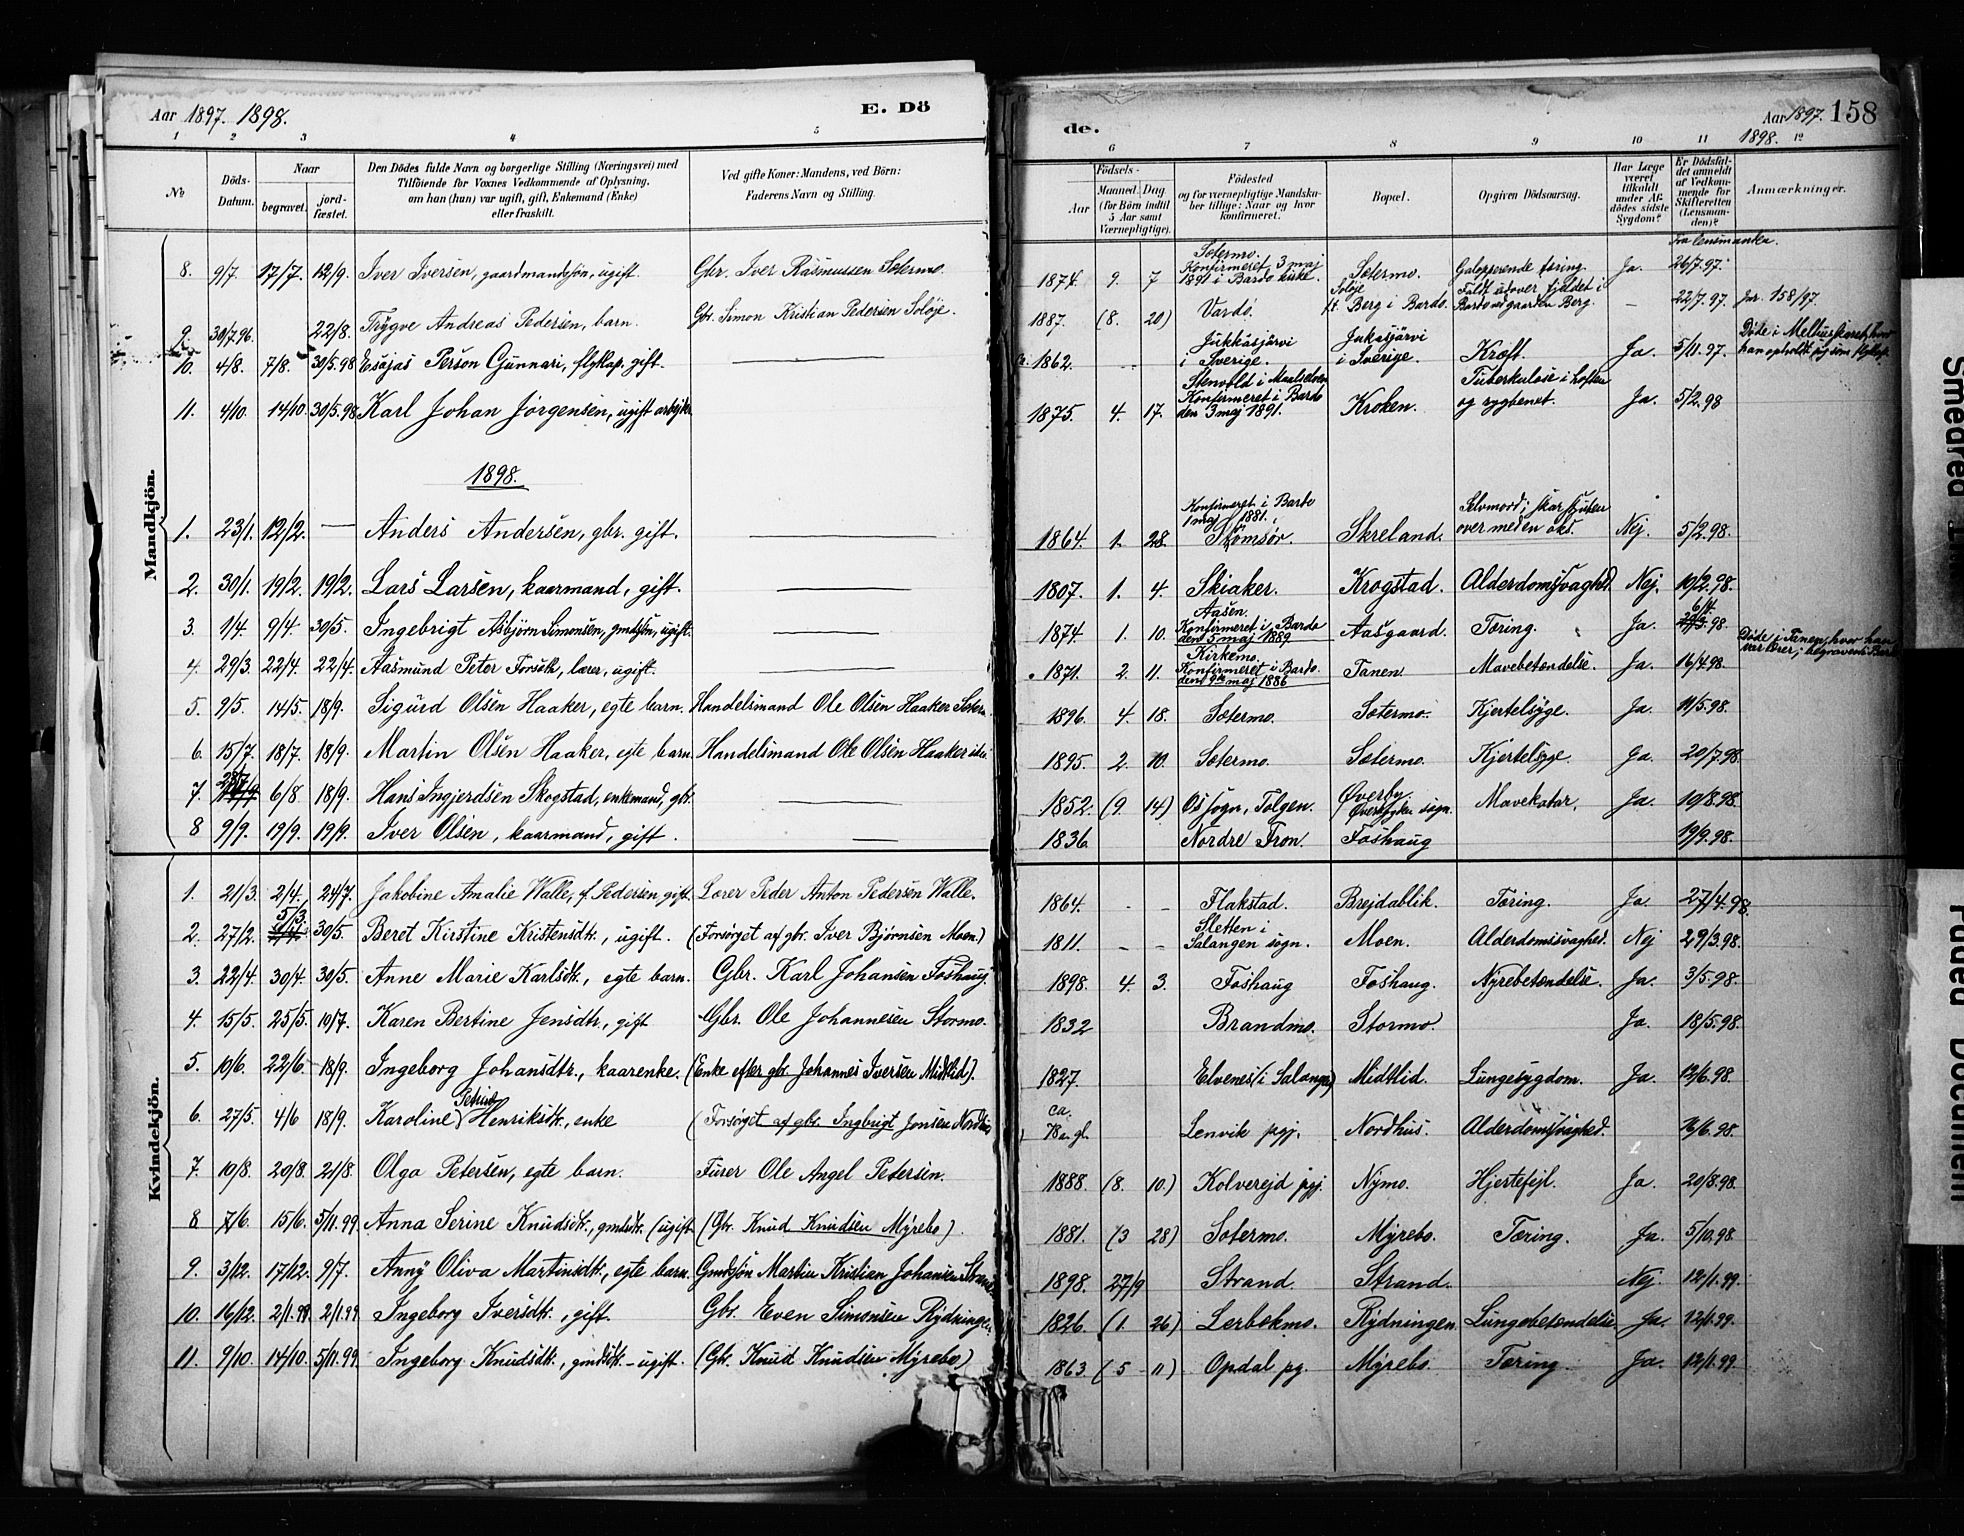 Aar 1897. 1898.
E. Dö
de.
Aar 1897. 158
1898.
1 2 3 4 5
6 7 8 9 10 11 12
No
Döds-Datum.
Naar
begravet.
jord-fæstet.
Den Dödes fulde Navn og borgerlige Stilling (Næringsvei) med
Tilföiende for Voxnes Vedkommende af Oplysning,
om han (hun) var ugift, gift, Enkemand (Enke)
eller fraskilt.
Ved gifte Koner: Mandens, ved Börn:
Faderens Navn og Stilling.
Födsels-
Aar
Maaned. Dag
(for Börn indtil
5 Aar samt
Værnepligtige).
Födested
og for værnepligtige Mandskaber tillige: Naar og hvor
konfirmeret.
Bopæl.
Opgiven Dödsaarsag.
Har Læge
været
tilkaldt
under Afdödes sidste
Sygdom?
Er Dödsfaldet anmeldt
af Vedkommende for
Skifteretten
(Lensmanden)?
Anmærkninger.
Mandkjön.
8. 9/7. 17/7. 12/9. Iver Iversen, gaardmandssøn, ugift. Gbr. Iver Rasmussen Sætermo. 1874. 9. 7 Sætermo. Konfirmeret 3 maj 1891 i Bardo kirke. Sætermo. Galopperende tæring. Ja. fra lensmanden. 26/7.97.
9. 30/7.96. 22/8. Trygve Andreas Pedersen, barn. Gbr. Simon Kristian Pedersen Soløje. 1887. (8. 20) Vardø. Soløje Berg i Bardo. Faldt udover fjeldet i Bardo udgaarden Berg. — 22/7.97. Jnr. 158/97.
10. 4/8. 7/8. 30/5.98 Esajas Person Gunnari, flytlap, gift. — 1862. Jukkasjärvi i Sverige. Jukasjärvi i Sverige. Kræft. Ja. 5/11.97. Døde i hvor han opholdt sig som flytlap.
11. 4/10. 14/10. 30/5.98 Karl Johan Jørgensen, ugift arbejder — 1875. 4. 17. Stenvold i Maalselven Konfirmeret i Bardo den 3 maj 1891. Kroken. Tuberkulose i hoften og rygbenet. Ja. 5/2.98
1898.
1. 23/1. 12/2. — Anders Andersen, gbr. gift. — 1864. 1. 28. Konfirmeret i Bardo 1 maj 1881. Skreland. Selvmord; skar struben over med en økd. Nej. 5/2.98.
2. 30/1. 19/2. 19/2. Lars Larsen, kaarmand, gift. — 1807. 1. 4. Skiaker. Krogstad. Alderdomssvaghed. Nej. 10/2.98.
3. 1/4. 9/4. 30/5. Ingebrigt Asbjørn Simonsen, gmdssøn, ugift. — 1874. 1. 10. Aasen. Konfirmeret i Bardo den 5 maj 1889 Aasgaard. Tæring. Ja. 6/4. 98.
4. 29/3. 22/4. 22/4. Aasmund Peter Forseth, lærer, ugift. — 1871. 2. 11. Kirkemo. Konfirmeret i Bardo. den 9de maj 1886 Tanen. Mavebetændelse. Ja. 16/4.98. Døde i Tanen, hvor han var lærer; begravet i Bardo
5. 9/5. 14/5. 18/9. Sigurd Olsen Haaker, egte barn. Handelsmand Ole Olsen Haaker Sæterm. 1896. 4. 18. Sætermo. Sætermo. Kjertelsyge. Ja. 11/5.98.
6. 15/7. 18/7. 18/9. Martin Olsen Haaker, egte barn. Handelsmand Ole Olsen Haaker 1895. 2. 10. Sætermo. Sætermo. Kjertelsyge. Ja. 20/7.98.
7. 28/7 6/8 18/9. Hans Ingjerdsen Skogstad, enkemand, gbr. — 1852. (9. 14) Os sogn, Tolgen. Øverby. Øverbygden sogn. Mavekatar. Ja. 10/8.98.
8 9/9. 19/9. 19/9. Iver Olsen, kaarmand, gift. — 1836. Nordre Fron. Foshaug 19/9.98.
Kvindekjön.
1. 21/3. 2/4. 24/7. Jakobine Amalie Walle, f. Pedersen, gift. Lærer Peder Anton Pedersen Walle. 1864. - - Flakstad. Brejdablik. Tæring. Ja. 27/4.98.
2. 27/2. 5/3. 30/5. Beret Kirstine Kristensdtr., ugift. (Forsørget af gbr. Iver Bjørnsen Moen.) 1811. - - Sletten i Salangen sogn. Moen. Alderdomssvaghed. Nej 29/3.98.
3. 22/4. 30/4. 30/5. Anne Marie Karlsdtr., egte barn. Gbr. Karl Johansen Foshaug. 1898. 4. 3. Foshaug Foshaug. Nyrebetændelse. Ja. 3/5.98.
4. 15/5. 25/5. 10/7. Karen Bertine Jensdtr., gift Gbr. Ole Johannesen Stormo. 1832 Brandmo. Stormo. Ja. 18/5.98.
5. 10/6. 22/6. 18/9. Ingeborg Johansdtr., kaarenke. (Enke efter gbr. Johannes Iversen Midtlid). 1827. Elvenes (i Salangen) Midtlid. Lungesygdom. Ja. 12/6.98.
6. 27/5. 4/6 18/9. Karoline Henriksdtr., enke (Forsørget af gbr. Ingebrigt Jonsen Nordhus ca. Lenvik pgj. Nordhus. Alderdomssvaghed. 98.
7. 10/8. 20/8. 21/8. Olga Petersen, egte barn. Furer Ole Angel Petersen. 1888. (8. 10.) Kolverejd pgj. Nymo. Hjertefejl. Ja. 20/8.98.
8 7/6. 15/6. 5/11.99. Anna Serine Knudsdtr., gmdsdtr. (ugift (Gbr. Knud Knudsen Myrebo). 1881. (3 28) Sætermo. Myrebo. Tæring. Ja. 5/10.98.
9. 3/12. 17/12. 9/7. Anny Oliva Martinsdtr., egte barn. Gmdssøn Martin Kristian Johansen Strand 1898. 27/9 Strand. Strand. Nej. 12/1.99.
10. 16/12. 2/1.99. 2/1.99 Ingeborg Iversdtr., gift. Gbr. Even Simonsen Rydningen. 1826. (1. 26) Lerbekmo. Rydningen. Lungebetændelse Ja. 12/1.99.
11. 9/10. 14/10. 5/11.99. Ingeborg Knudsdtr., gmdsdtr. - ugift. (Gbr. Knud Knudsen Myrebo.) 1863. (5 11) Opdal pg. Myrebo. Tæring. Ja. 12/1.99.
Faded Document